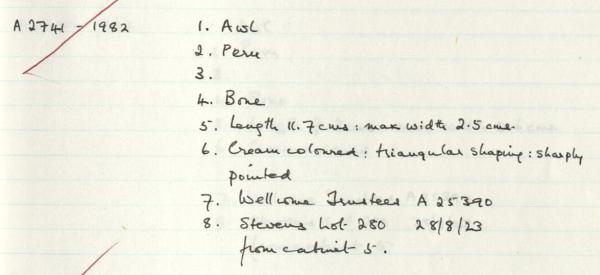 A 2741 - 1982
1. Awl
2. Peru
3.
4. Bone
5. Length 11.7 cms : max width 2.5 cms.
6. Cream coloured : triangular shaping : sharply
pointed
7. Wellcome Trustees A 25390
8. Stevens Lot 280 28/8/23
from cabinet 5.